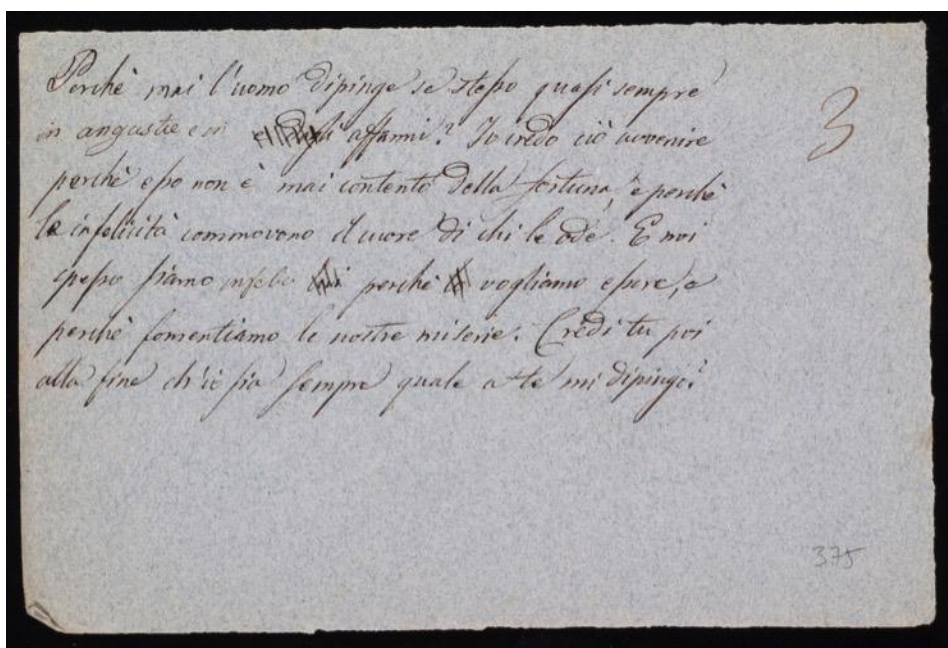 Perchè mai l'uomo dipinge se stesso quasi sempre
in angustie e in affanni? Io credo ciò avvenire
perchè esso non è mai contento della fortuna, e perchè
le infelicità commovono il cuore di chi le ode. E noi
spesso siamo infelici perchè vogliamo essere, e
perchè fomentiamo le nostre miserie. Credi tu poi
alla fine ch'io sia sempre quale a te mi dipingo?
3
375